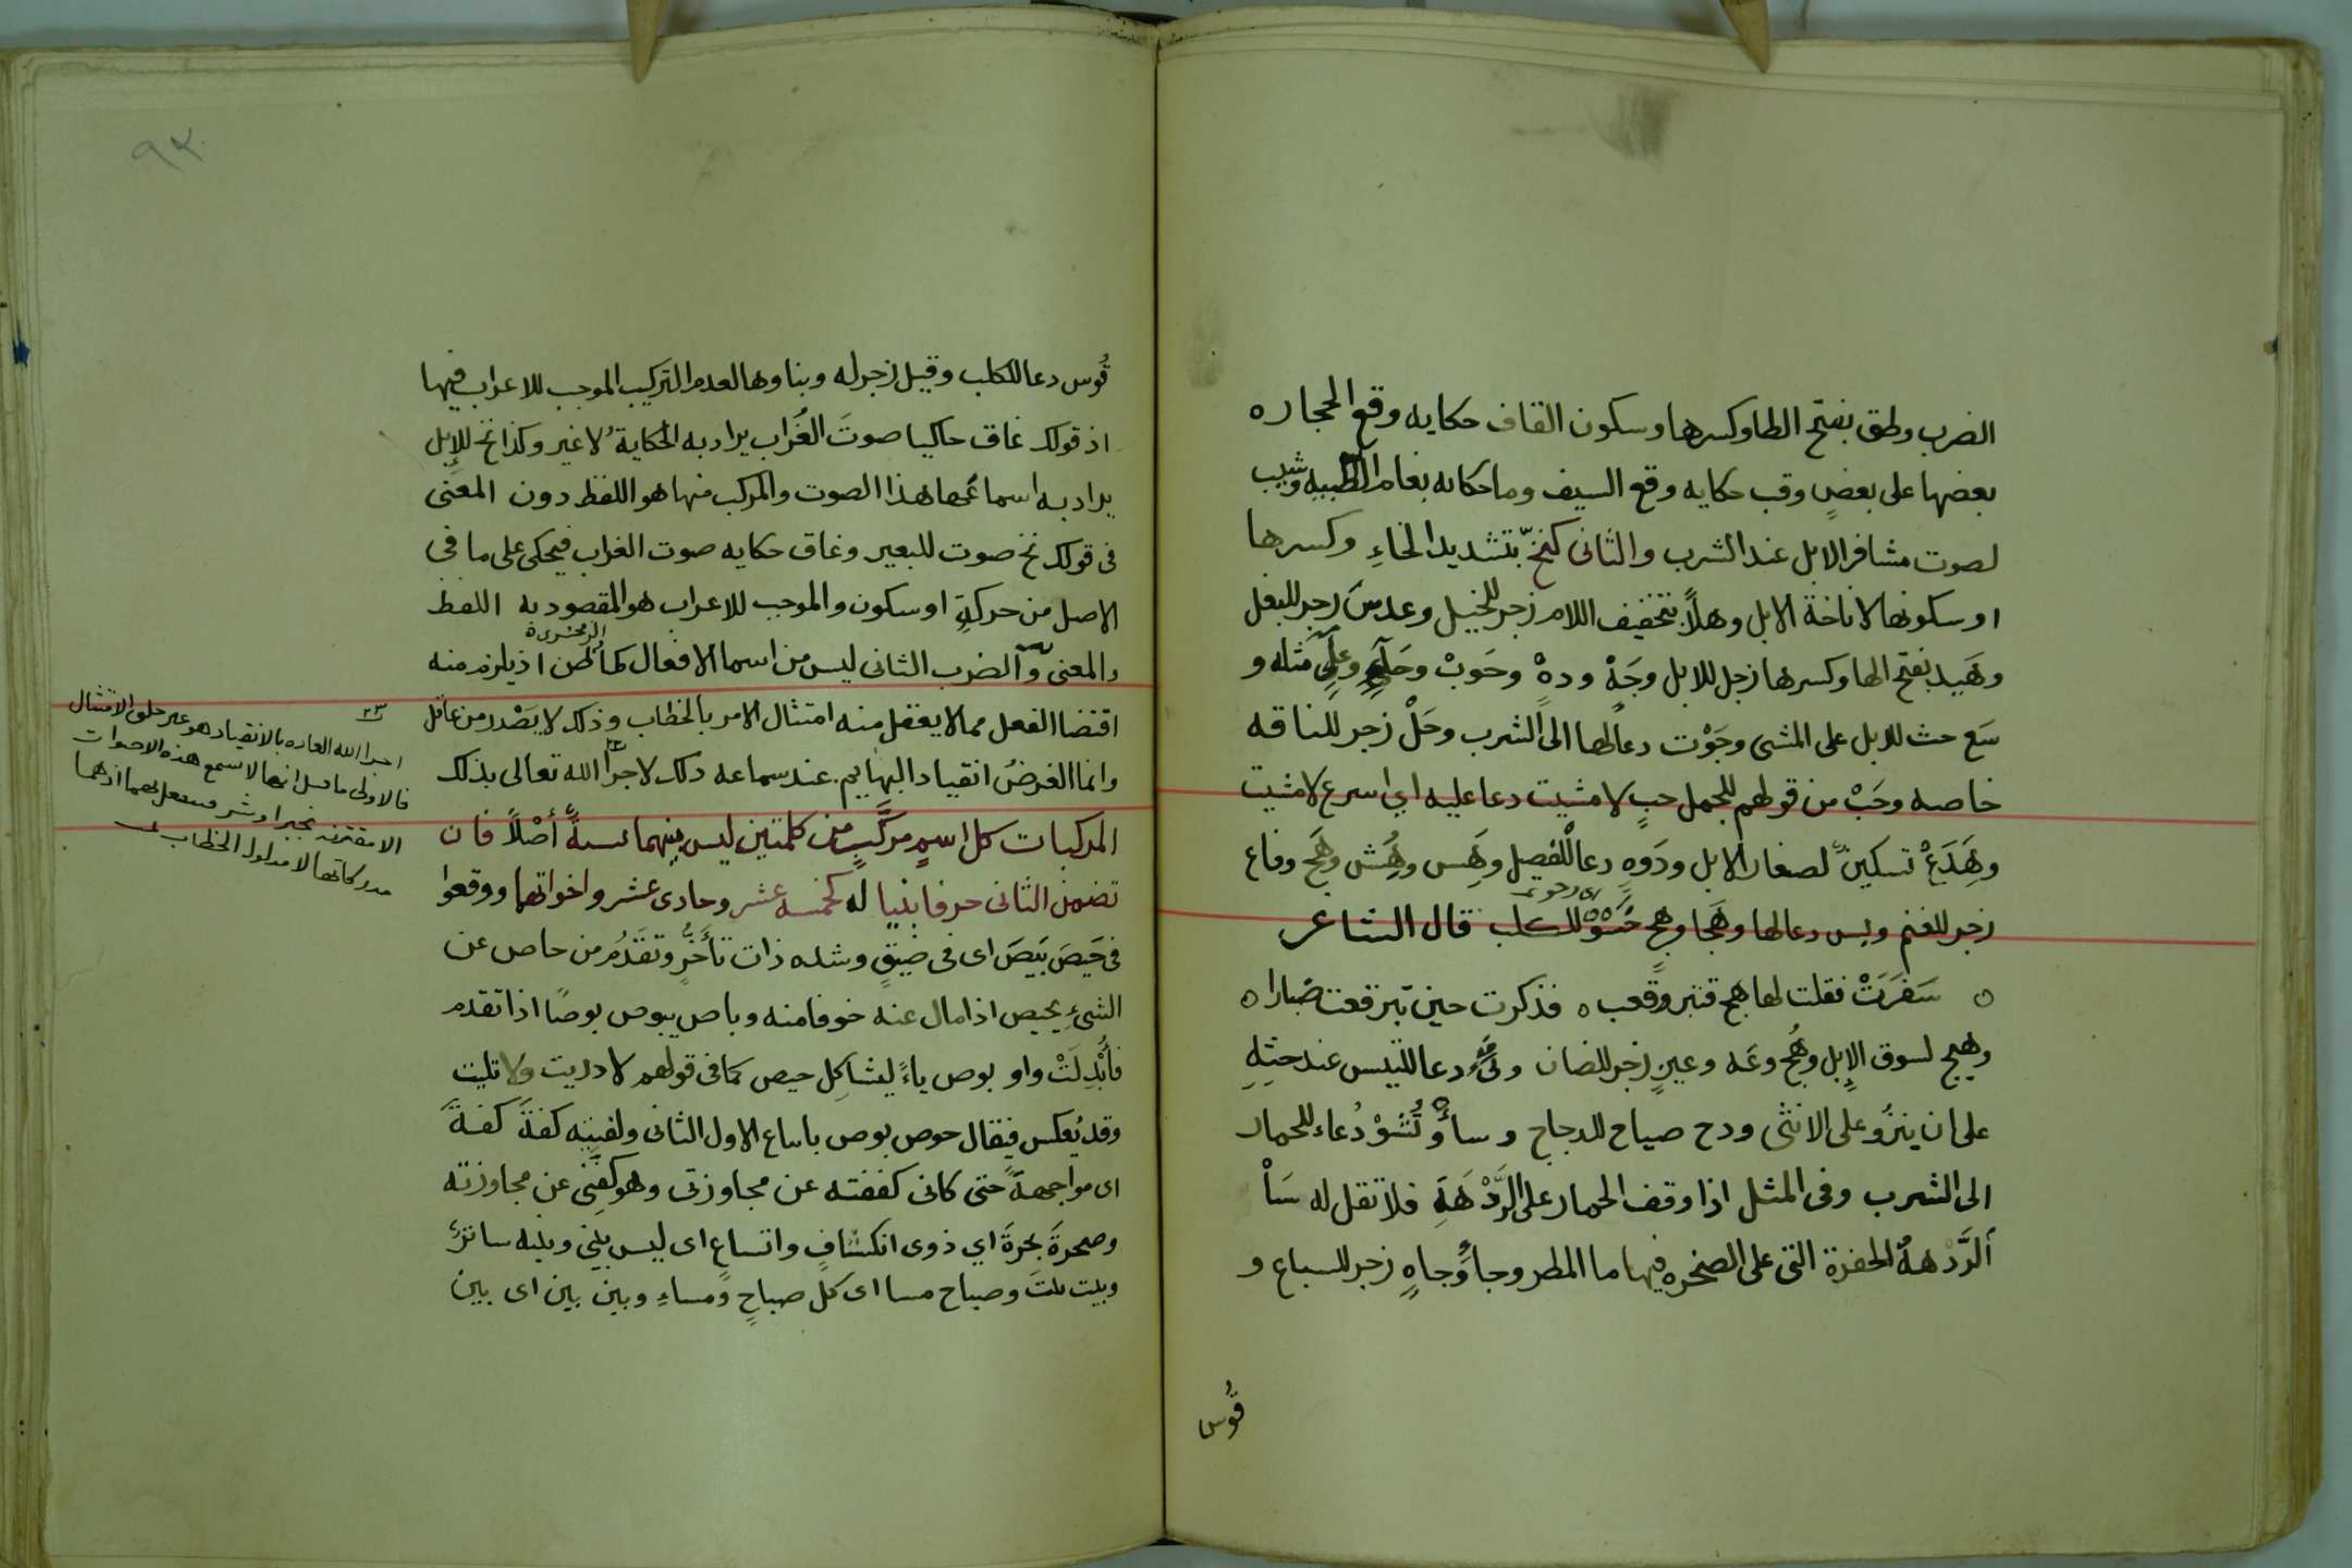 الضرب وطق بفتح الطا وكسرها وسكون القاف حكايه وقع الحجاره
بعضها على بعضٍ وقب حكايه وقع السيف وما حكايه بغام الظبيه وشيب
لصوت مشافر الابل عند الشرب والثانى كنخّ بتشديد الخاءِ وكسرها
او سكونها لاناخة الابل وهلاً بتخفيف اللام زجر للخيل وعدسَ زجر للبغل
وهَيد بفتح الها وكسرها زجل للابل وجَهْ ودهْ وحَوبْ وحَلٍ مثله و
سَع حث للابل على المشى وجَوْت دعا لها الى الشرب وحَلْ زجر للناقه
خاصه وحَبْ من قولهم للجمل حبٍ لا مشيت دعا عليه اي اسرع لا مشيت
وهَِدَعْ تسكين لصغار الابل ودَوهِ دعا للفصيل وهَِس وهُِش وهَج وفاع
زجر للغنم وبس دعا لها وهَجا وهج للكلب قال الشاعر
ه سَفَرَتْ فقلت لها هج فتبرقعب ه فذكرت حين تبرقعت ضبارا ه
وهيج لسوق الإبل وهُج وعَه وعيزٍ زجر للضان دعا للتيس عند حثِهِ
على ان ينزُو على الانثى ودح صياح للدجاج وسأْ وتُشُوْ دُعاء للحمار
الى الشرب وفى المثل اذا وقف الحمار على الرَّدْهَةِ فلا تقل له سَأْ
ألرَّدْهةُ الحفرة التى على الصخره فيها ما المطر وجأ وجاهٍ زجر للسباع و
قُوس
٩٣
قُوس دعا للكلب وقيل زجر له وبناوها لعدم التركيب الموجب للاعراب فيها
اذ قولك غاق حاكيا صوتَ الغُراب يراد به الحكايةُ لا غير وكذا نخ للإبل
يراد به اسماعها هذا الصوت والمركب منها هو اللفظ دون المعنى
فى قولك نخ صوت للبعير وغاق حكايه صوت الغراب فيحكى على ما فى
الاصل من حركةٍ او سكون والموجب للاعراب هو المقصود به اللفظ
الزمخشرى
والمعنى والضرب الثانى ليس من اسما الافعال كما ظن اذ يلزم منه
اقتضا الفعل مما لا يعقل منه امتثال الامر بالخطاب وذلك لا يَصْدر من عاقل
وانما الغرضُ انقياد البهائيم عند سماعه ذلك لاجرا الله تعالى بذلك
المركبات كل اسمٍ مركَّبٍ من كلمتين ليس بينهما نسبةً أصْلاً فان
تضمن الثانى حرفا بنيا له كخمسه عشر وحادى عشر واخواتها ووقعوا
فى حَيَصَ بَيَصَ اى فى ضِيقٍ وشده ذات تأخُّرٍ وتقدّمٍ من حاص عن
الشىءِ يحيص اذا مال عنه خوفا منه وباص يبوص بوصًا اذا تقدم
فأُبْدِلَتْ واو بوص ياءً ليشاكِل حيص كما فى قولهم لا دريت ولا تليت
وقد يُعكس فيقال حوص بوص باتباع الاول الثانى ولقيتِه كفةَ كفةَ
اى مواجهةً حتى كانى كففته عن مجاوزتى وهو كفنى عن مجاوزته
وصحرةَ بحرةَ اي ذوى انكشافٍ واتساعٍ اى ليس بينى وبينه ساتر
وبيت بيتَ وصباح مسا اى كلَّ صباحٍ ومساءٍ وبين بين اى بين
اجرا الله العاده بالانقياد هو عير خلق الامتثال
فالاولى ما قيل انها لا تسمع هذه الاصوات
الا مقترنه بخير او شر
مدركاتها لا مدلول الخطاب